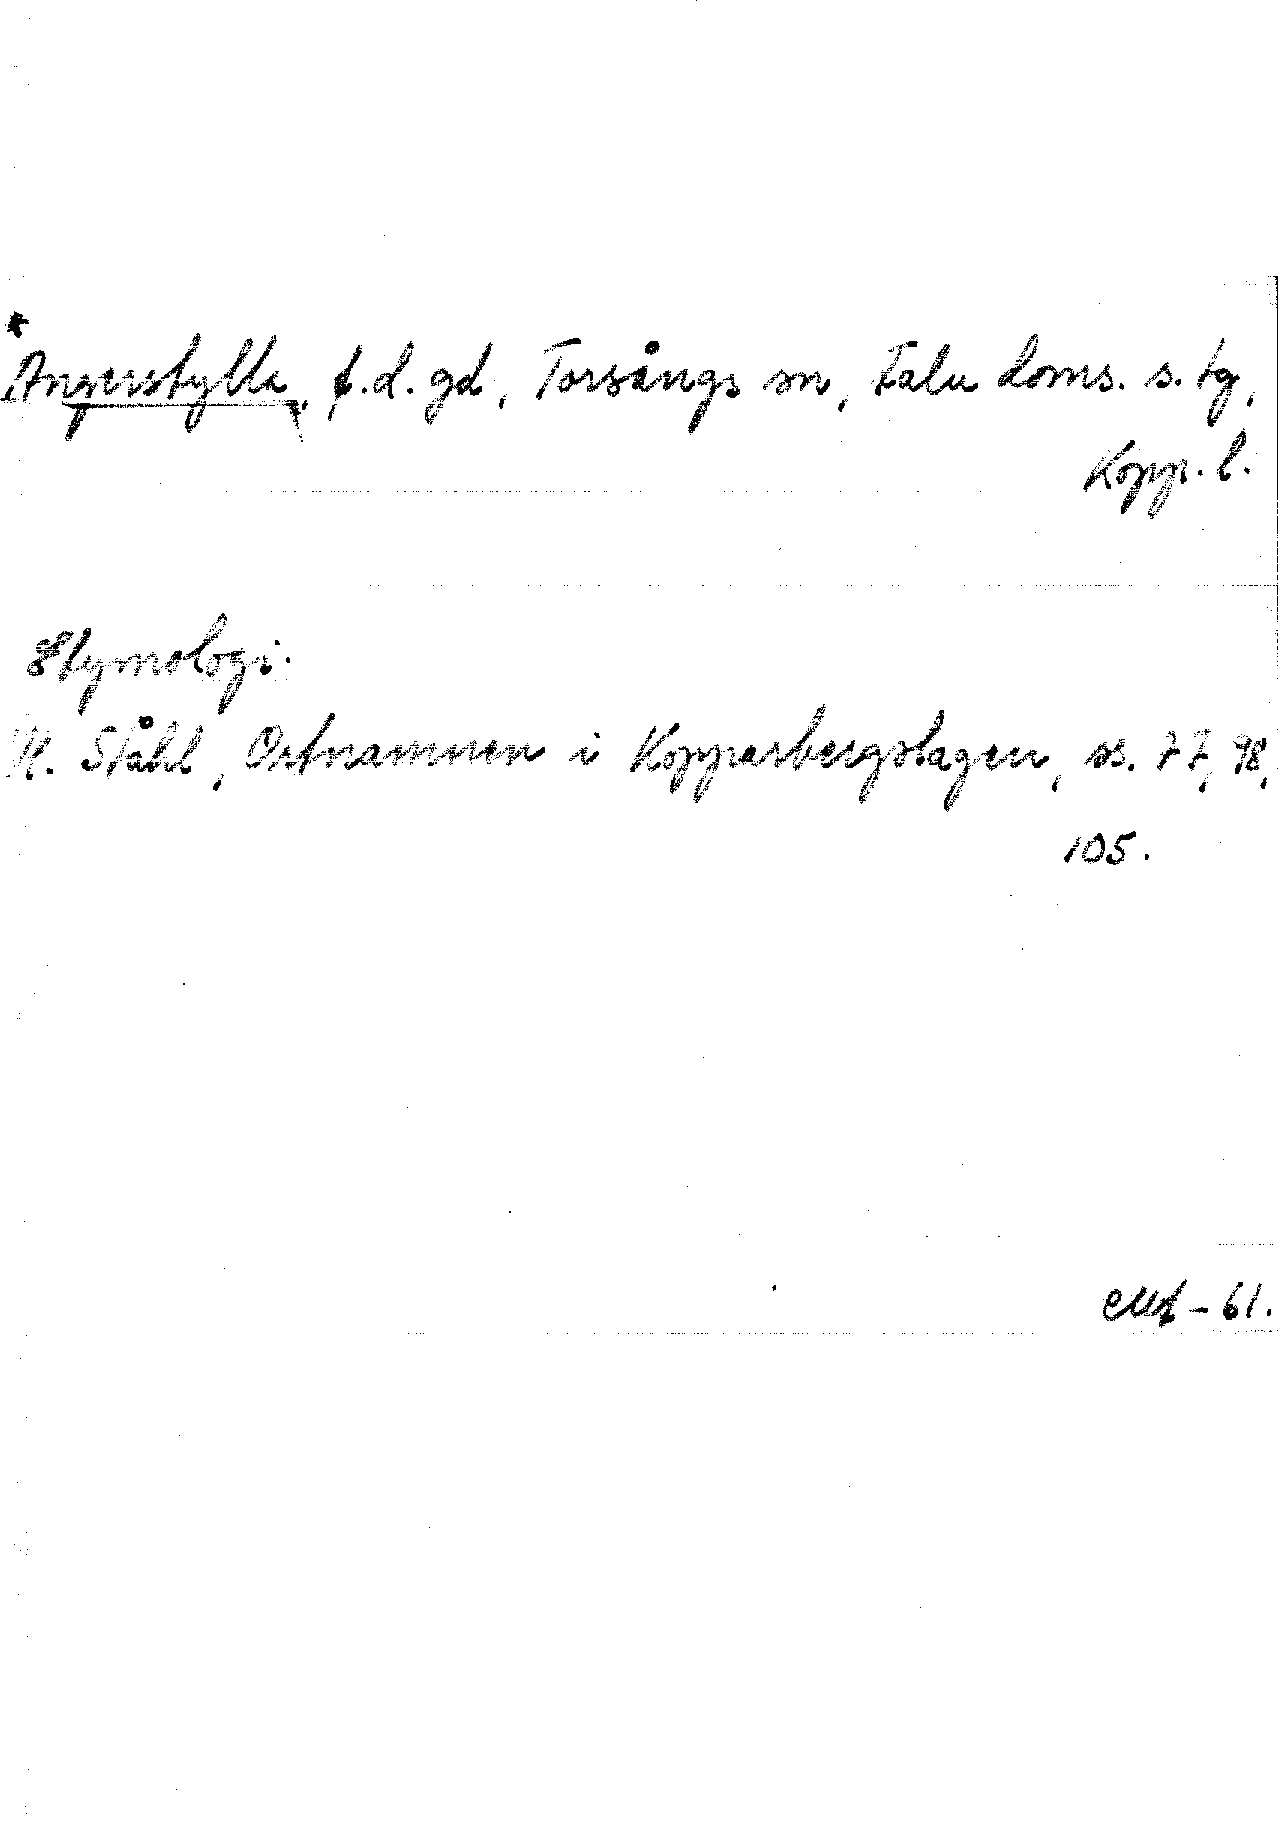 *Angerstylla, f.d. gd, Torsångs sn, Falu doms. s. tg,
Kopp. l.
Etymologi.
H. Ståhl, Ortnamnen i Kopparbergslagen, ss. 77, 98,
105.
-61.